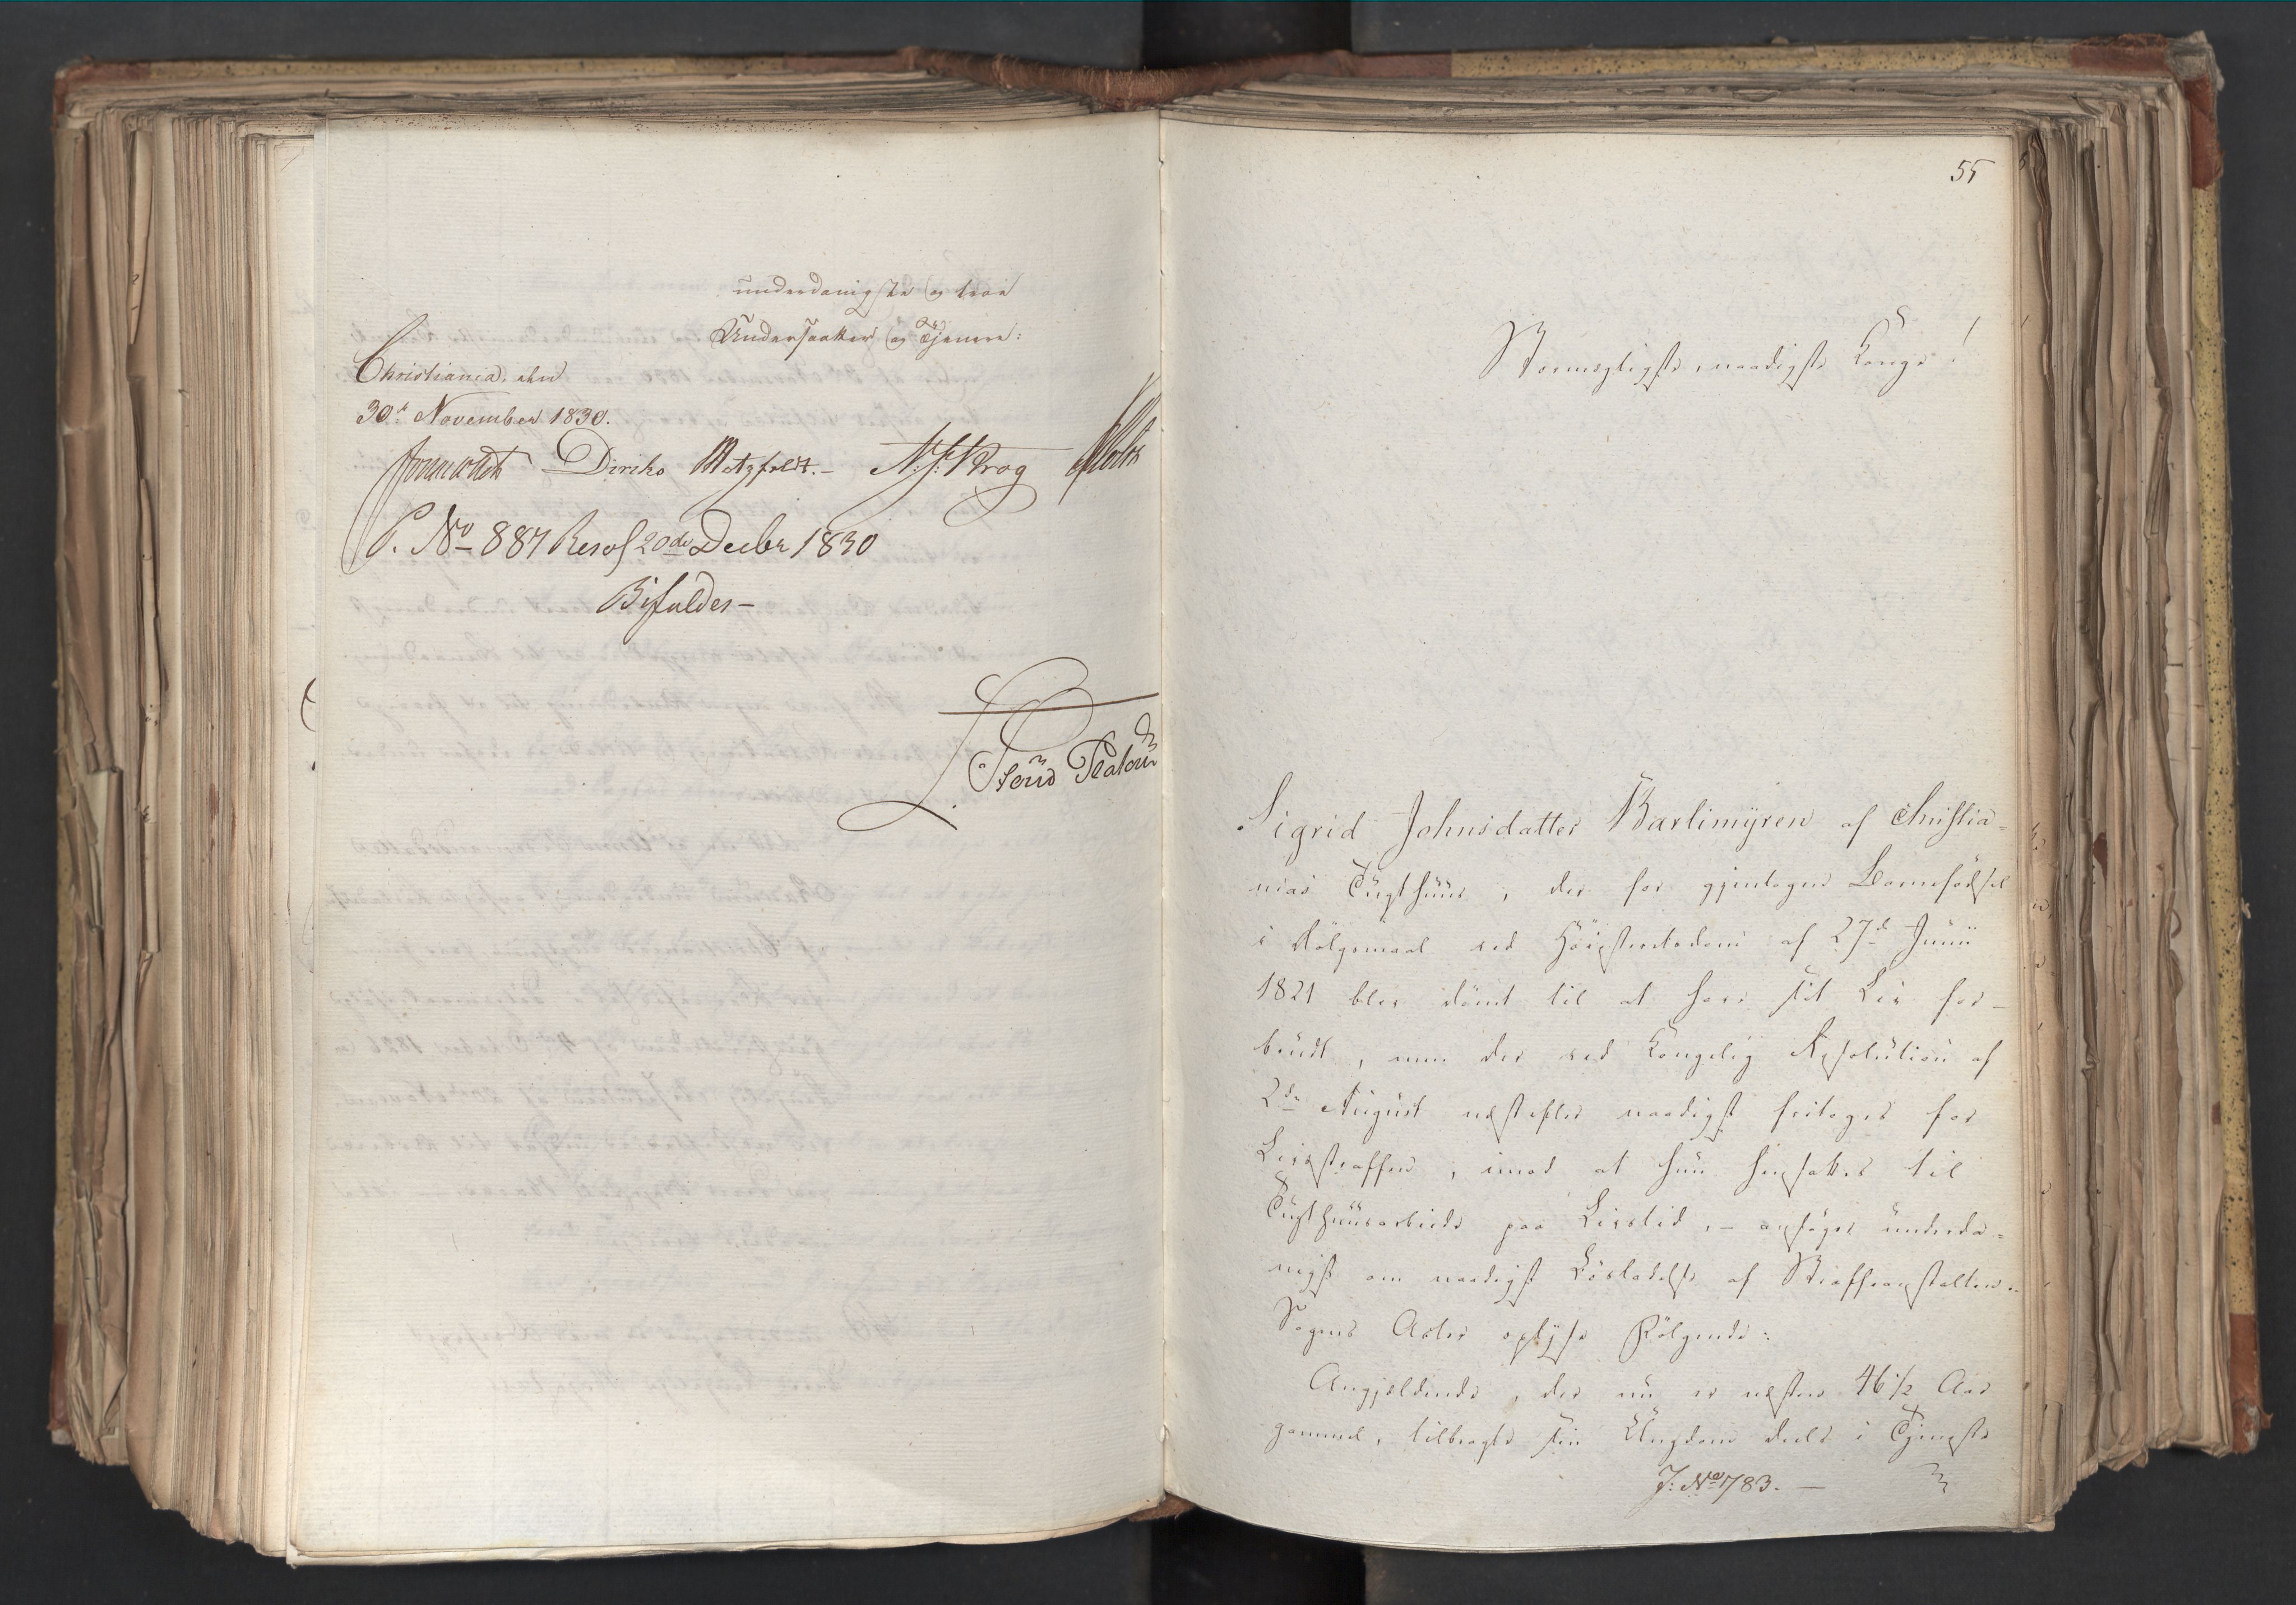 underdanigste og troe
Undersaatter og Tjenere:
Christiania, den
30te November 1830.
Diriks Motzfeldt.– N. J. Krog
P. No 887 Resol 20de Decbr 1830
Bifaldes –
55
Stormægtigste, naadigste Konge!
Sigrid Johnsdatter Bartimyren af Christia=
nias Tugthuus, der for gjentagen Barnefødsel
i Dølgsmaal ved Høiesteretsdom af 27de Junii
1821 blev dömt til at have sit Liv for-
brudt, men der ved Kongelig Resolution af
2den August næstefter naadigst fritoges for
Livsstraffen, imod at hun hensattes til
Tugthuusarbeide paa Livstid, – ansøger underda=
nigst om naadigst Løsladelse af Straffeanstalten.
Sagens Acter oplyse Følgende:
Angjældende, der nu er næsten 46 1/2 Aar
gammel, tilbragte sin Ungdom deels i Tjeneste
J: No 783. –